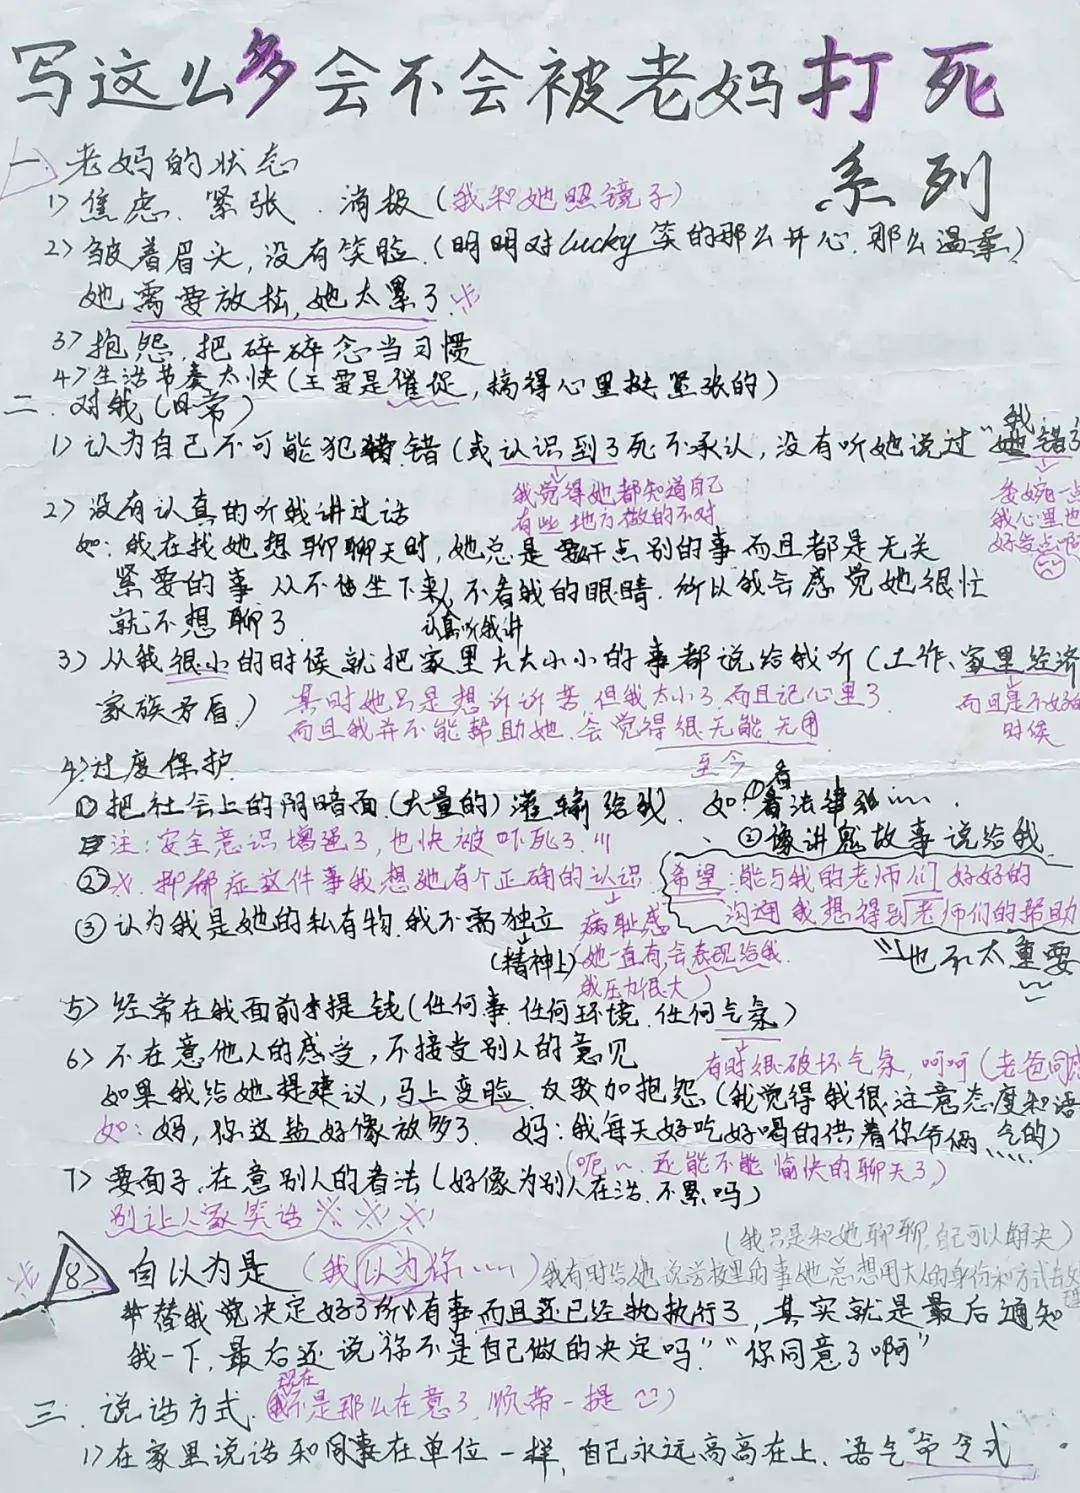 写这么多会不会被老妈打死
系列
一、老妈的状态
1) 焦虑、紧张、消极（我和她照镜子）
2) 皱着眉头，没有笑脸.（明明对lucky笑的那么开心.那么温柔）
她需要放松，她太累了
3) 抱怨，把碎碎念当习惯
4) 生活节奏太快（主要是催促，搞得心里挺紧张的）
二、对我（日常）
1) 认为自己不可能犯错（或认识到了死不承认，没有听她说过“我错了
我觉得她都知道自己
有些地方做的不对
委婉一点
我心里也
好受点啊
2) 没有认真的听我讲过话
如：我在找她想聊聊天时，她总是要干点别的事而且都是无关
紧要的事 从不坐下来，不看我的眼睛.所以我会感觉她很忙
认真听我讲
就不想聊了
3) 从我很小的时候就把家里大大小小的事都说给我听（工作、家里经济
家族矛盾.）
其时她只是想诉诉苦，但我太小了.而且记心里了.
而且我并不能帮助她.会觉得很无能 无用
至今
而且是不好的
时候
4) 过度保护.
①把社会上的阴暗面（大量的）灌输给我. 如：①看法律
②像讲鬼故事说给我
注：安全意识增强了，也快被吓死了.!!!
②抑郁症这件事我想她有个正确的认识.
希望：能与我的老师们好好的
沟通 我想得到老师们的帮助
也不太重要
③认为我是她的私有物.我不需独立
（精神上）
病耻感
（她一直有，会表现给我.
我压力很大）
5) 经常在我面前提钱（任何事.任何环境.任何气氛）
有时很破坏气氛，呵呵（老爸同
6) 不在意他人的感受，不接受别人的意见
如果我给她提建议，马上变脸 反驳加抱怨（我觉得我很注意态度和语
如：妈，你这盐好像放多了. 妈：我每天好吃好喝的供着你爷俩
气的）
（呃~ 还能不能愉快的聊天了）
7) 要面子.在意别人的看法（好像为别人在活.不累吗）
别让人家笑话
（我只是和她聊聊.自己可以解决）
8) 自以为是（我以为你……）我有时给她说学校里的事她总想用大人的身份和方式去
替我决定好了所有事而且还已经执行了，其实就是最后通知
我一下，最后还说“你不是自己做的决定吗”“你同意了啊”
三、说话方式.（现在不是那么在意了.顺带一提）
1) 在家里说话和同事在单位一样，自己永远高高在上.语气“命令式